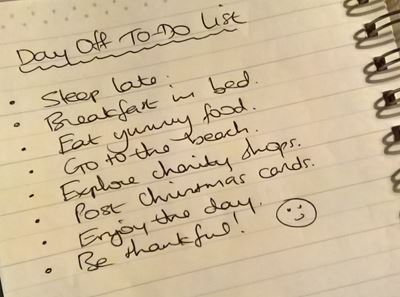 Day Off To-Do List
• Sleep late.
• Breakfast in bed.
• Eat yummy food.
• Go to the beach.
• Explore charity shops.
• Post Christmas cards.
• Enjoy the day.
• Be thankful!